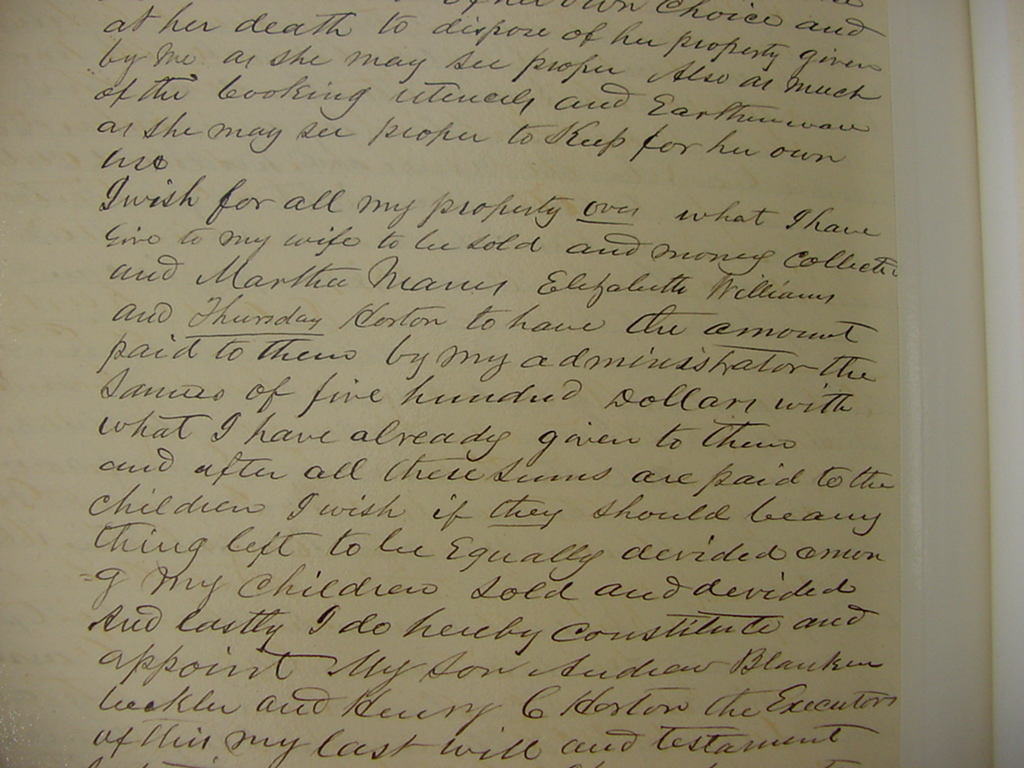 of her own Choice and
at her death to dispose of her property given
by me as she may see proper Also as much
of the Cooking utencils and Earthenware
as she may see proper to Keep for her own
use
I wish for all my property over what I have
Give to my wife to be sold and money Collected
and Martha Elizabeth Williams
and Thursday Horton to have the amount
paid to them by my administrator the
of five hundred Dollars with
what I have already given to them
and after all these sums are paid to the
Children I wish if they should be any
thing left to be Equally devided amon
=g my Children Sold and devided
And lastly I do hereby Constitute and
appoint My Son Andrew Blanken
beckler and Henry C Horton the Executors
of this my last will and testament